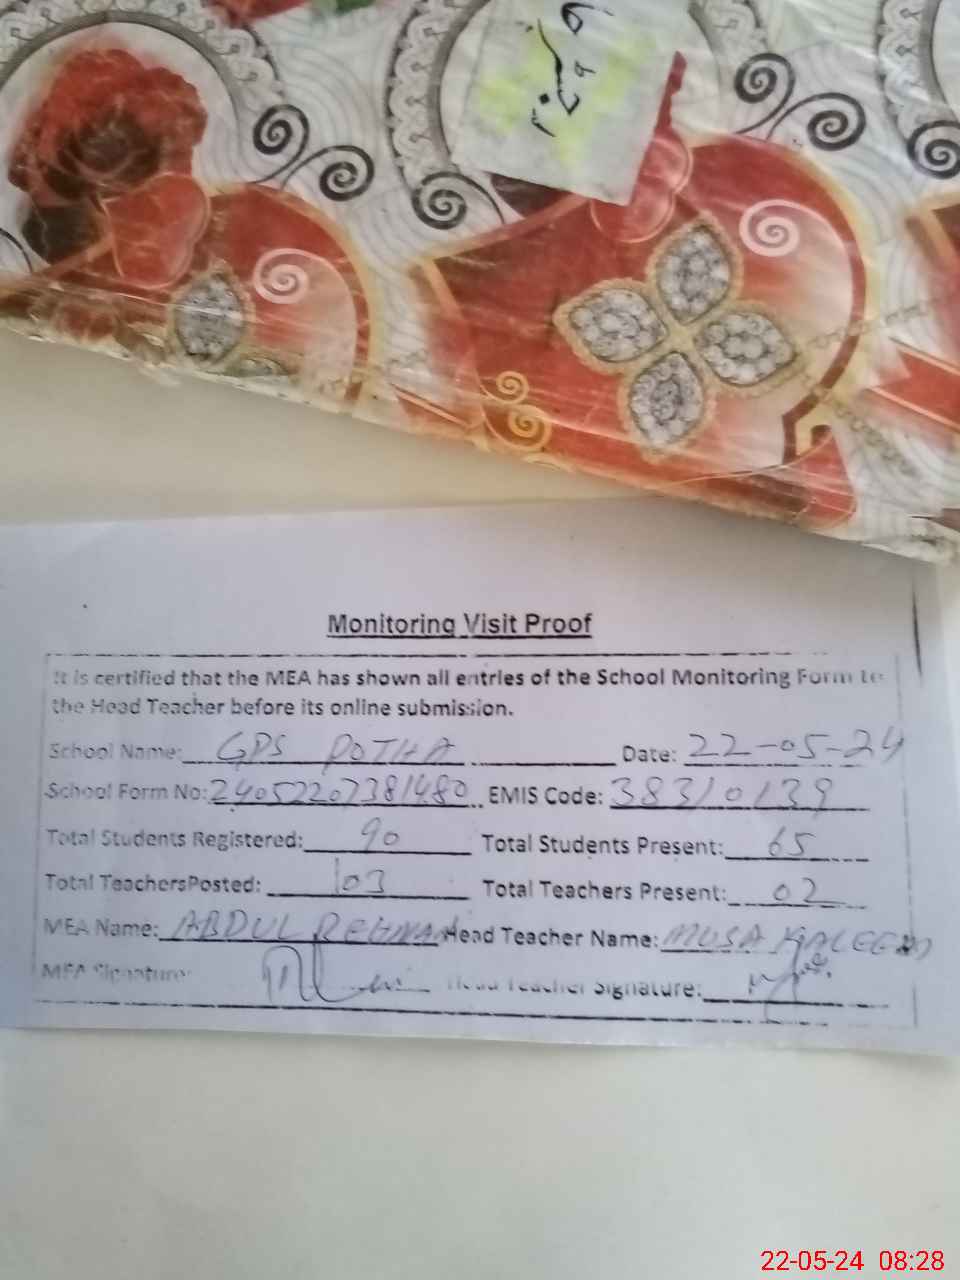 Monitoring Visit Proof
It is certified that the MEA has shown all entries of the School Monitoring Form to
the Head Teacher before its online submission.
School Name: GPS POTHA Date: 22-05-24
School Form No: 24052207381480 EMIS Code: 38310139
Total Students Registered: 90 Total Students Present: 65
Total TeachersPosted: 03 Total Teachers Present: 02
MEA Name: ABDUL REHMAN Head Teacher Name: MUSA KALEEM
MEA Signature: Head Teacher Signature:
22-05-24 08:28